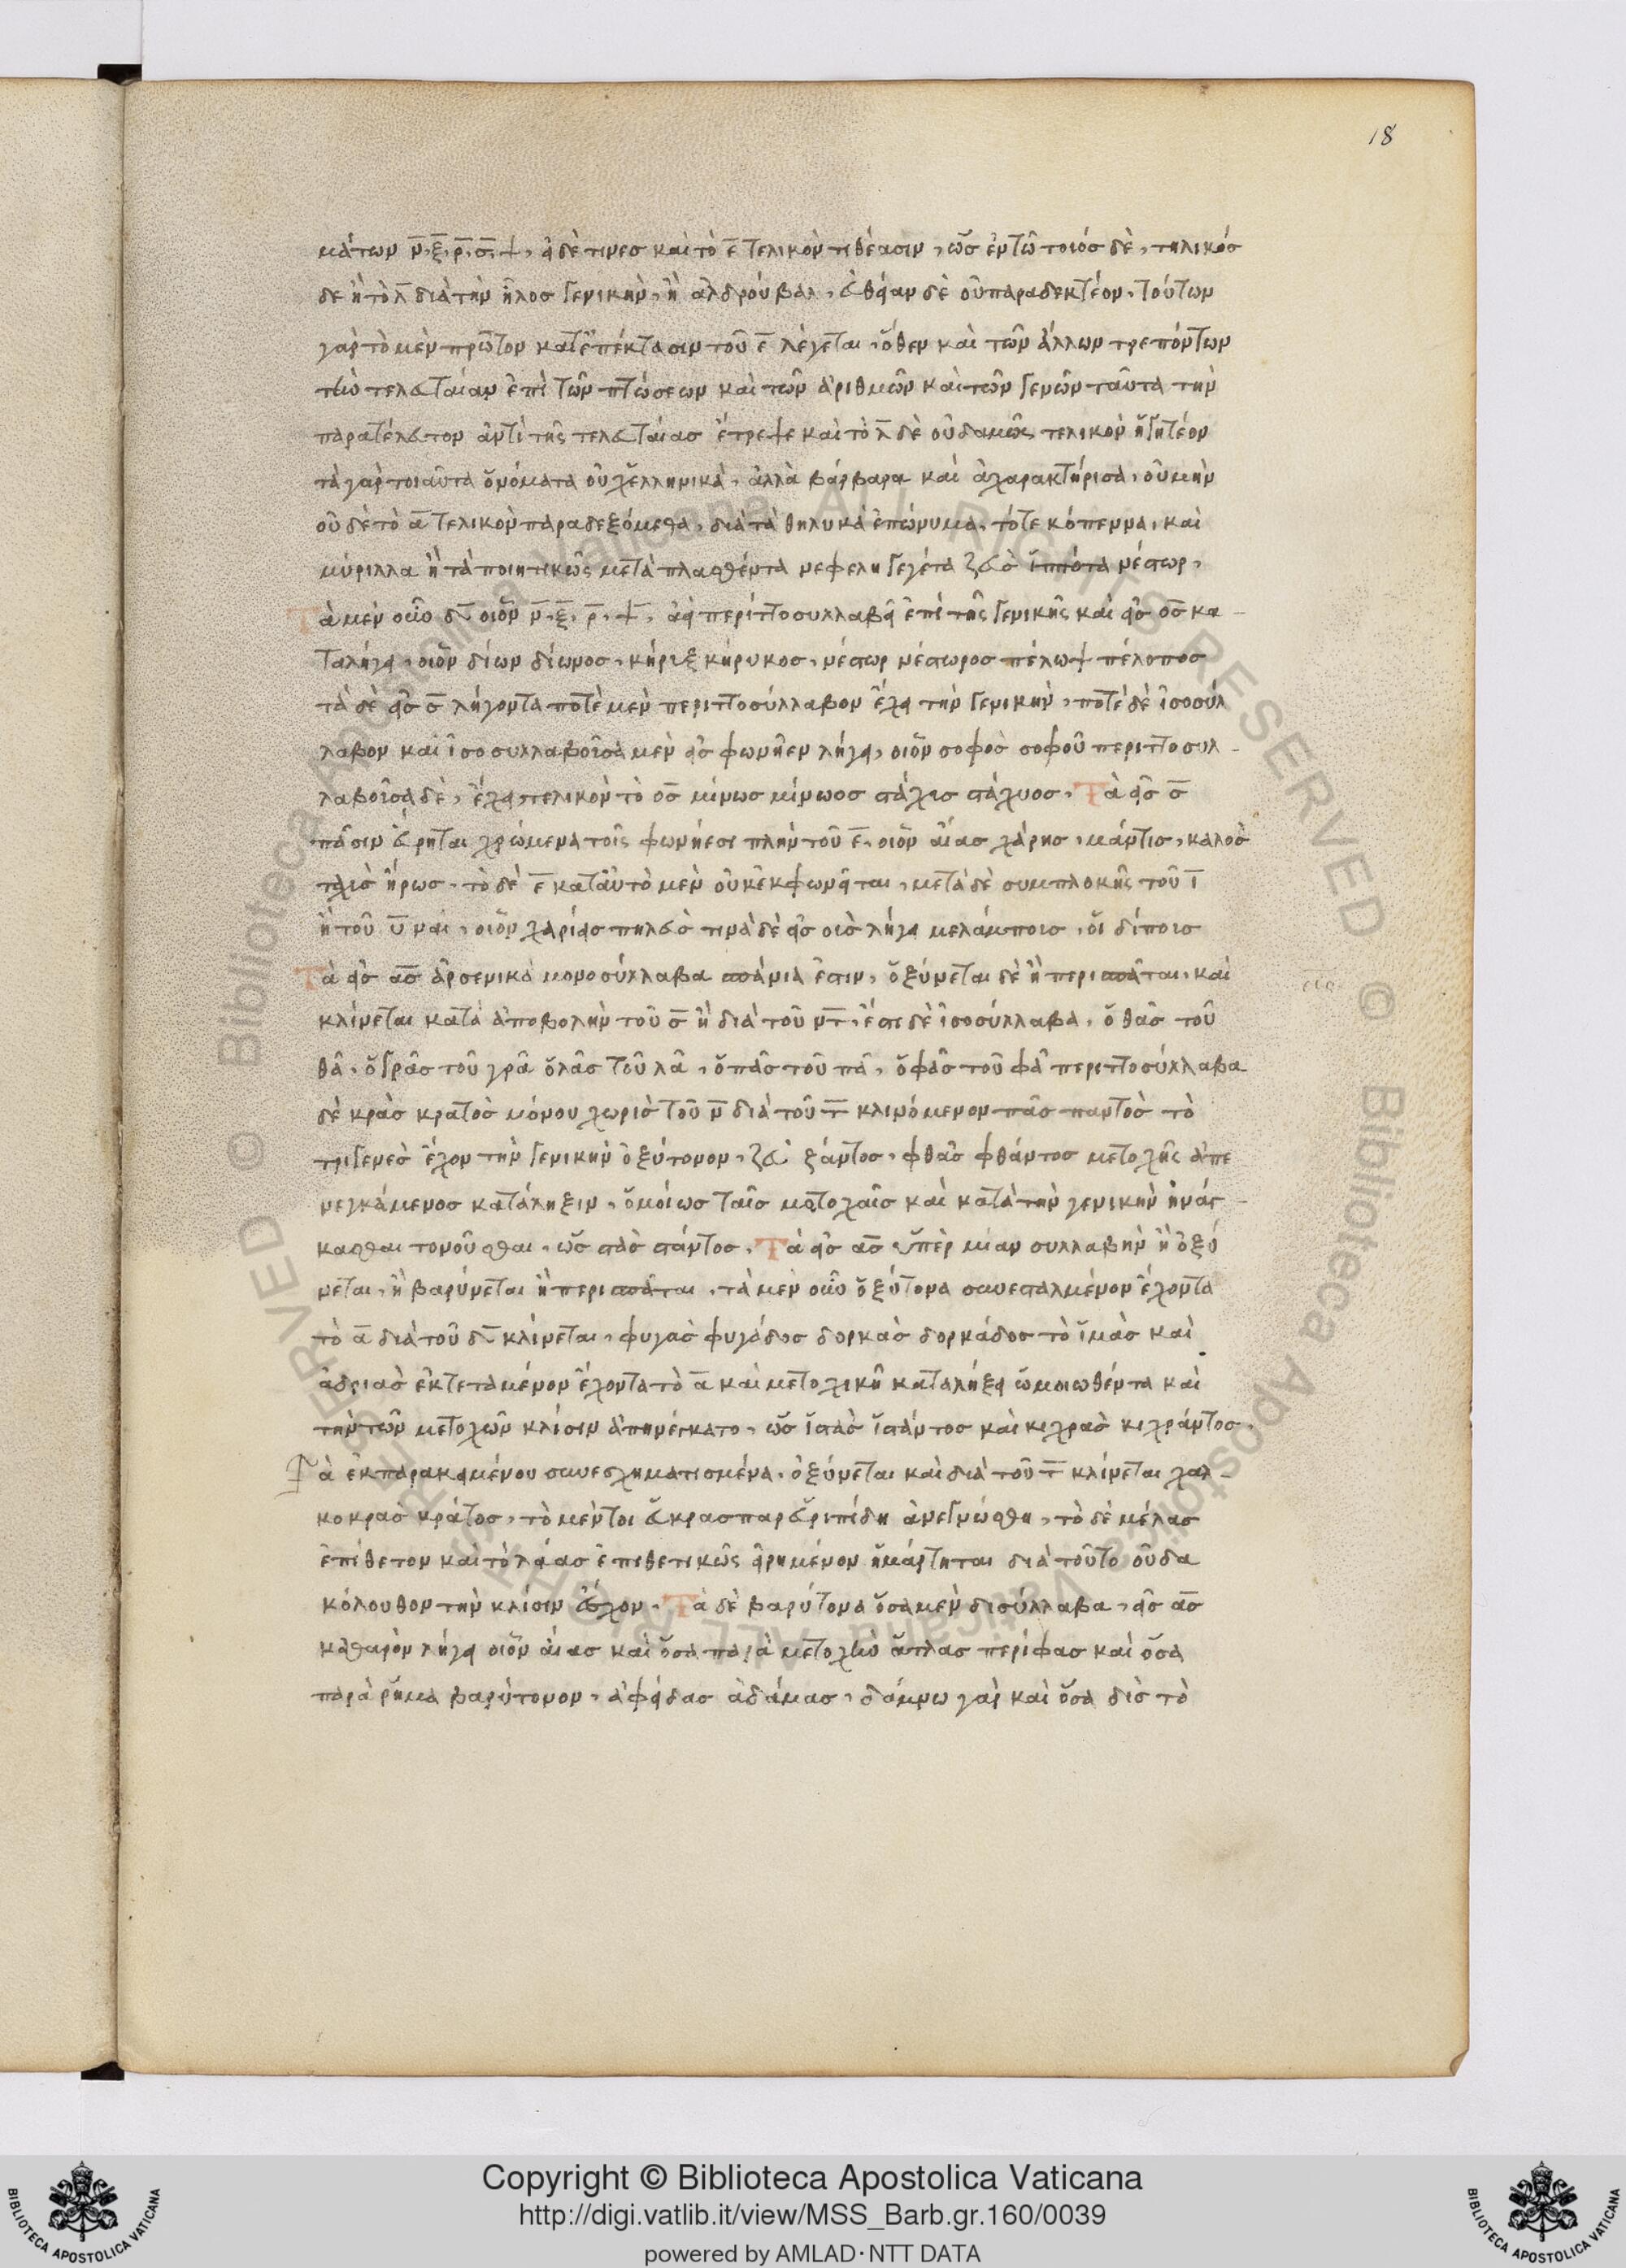 18
μάτων ν̅. ξ̅. ρ̅. σ̅. ψ, εἰ δέ τινες καὶ τὸ ε̅ τελικὸν τιθέασιν, ὡς ἐν τῷ τοιόσδὲ, τηλικόσ
δε ἢ τὸ λ̅ διὰ τὴν ἧλος γενικὴν, ἢ αλδρούβαλ, εὐθεῖαν δὲ οὐ παραδεκτέον, τούτων
γὰρ τὸ μὲν πρῶτον κατ' ἐπέκτασιν τοῦ ε̅ λέγεται, ὅθεν καὶ τῶν ἄλλων τρεπόντων
τὴν τελευταίαν ἐπὶ τῶν πτώσεων καὶ τῶν ἀριθμῶν καὶ τῶν γενῶν ταῦτα τὴν
παρατέλευτον ἀντὶ τῆς τελευταίας ἔτρεψε καὶ τὸ λ̅ δὲ οὐδαμῶς τελικὸν ἡγητέον
τὰ γὰρ τοιαῦτα ὀνόματα οὐχ ἑλληνικὰ, ἀλλὰ βάρβαρα καὶ ἀχαρακτήριστα, οὐ μὴν
οὐδὲ τὸ α̅ τελικὸν παραδεξόμεθα, διὰ τὰ θηλυκὰ ἐπώνυμα, τότε κόπεννα, καὶ
μύριλλα ἢ τὰ ποιητικῶς μεταπλασθέντα νεφεληγεγέτα ζεὺς ἱππότα νέστωρ,
Τὰ μὲν οὖν εἰς οἷον ν̅. ξ̅. ρ̅. ψ̅, ἀεὶ περιττοσυλλαβεῖ ἐπὶ τῆς γενικῆς καὶ εἰς ος̅ κα-
ταλήγει, οἷον δίων δίωνος, κήρυξ κήρυκος, νέστωρ νέστωρος πέλωψ πέλοπος
τὰ δὲ εἰς σ̅ λήγοντα ποτὲ μὲν περιττοσύλλαβον ἔχει τὴν γενικὴν, ποτὲ δὲ ἰσοσύλ
λαβον καὶ ἰσοσυλλαβοῦσα μὲν εἰς φωνῆεν λήγει, οἷον σοφὸς σοφοῦ περιττοσυλ-
λαβοῦσα δὲ, ἔχει τελικὸν τὸ ος̅ μίνως μίνωος στάχυς στάχυος, Τὰ εἰς σ̅
πᾶσιν εὕρηται χρώμενα τοῖς φωνήεσι πλὴν τοῦ ε̅, οἷον αἴας χάρης, μάντις, καλὸς
ταχὺς ἥρως, τὸ δὲ ε̅ κατ' αὐτὸ μὲν οὐκ ἐκφωνεῖται, μετὰ δὲ συμπλοκῆς τοῦ ι̅
ἢ τοῦ υ̅ ναὶ, οἷον χαρίεις πηλεὺς τινὰ δὲ εἰς ους λήγει μελάμπους, οἰδίπους
Τὰ εἰς ας̅ ἀρσενικὰ μονοσύλλαβα σπάνιά ἐστιν, ὀξύνεται δὲ ἢ περισπᾶται, καὶ
κλίνεται κατὰ ἀποβολὴν τοῦ σ̅ ἢ διὰ τοῦ ντ̅, ἔστι δὲ ἰσοσύλλαβα, ὁ θᾶς τοῦ
θᾶ, ὁ γρᾶς τοῦ γρᾶ ὁ λᾶς τοῦ λᾶ, ὁ πᾶς τοῦ πᾶ, ὁ φᾶς τοῦ φᾶ περιττοσύλλαβα
δὲ κρὰς κρατὸς μόνου χωρὶς τοῦ ν̅ διὰ τοῦ τ̅ κλινόμενον πᾶς παντὸς τὸ
τριγενὲς ἔχον τὴν γενικὴν ὀξύτονον, ζεῦ ξάντος, φθᾶς φθάντος μετοχῆς ἀπε
νεγκάμενος κατάληξιν, ὁμοίως ταῖς μετοχαῖς καὶ κατὰ τὴν γενικὴν ἠνάγ-
κασθαι τονοῦσθαι, ὡς στὰς στάντος. Τὰ εἰς ας̅ ὑπὲρ μίαν συλλαβὴν ἢ ὀξύ
νεται, ἢ βαρύνεται ἢ περισπᾶται, τὰ μὲν οὖν ὀξύτονα συνεσταλμένον ἔχοντα
τὸ α̅ διὰ τοῦ δ̅ κλίνεται, φυγὰς φυγάδος δορκὰς δορκάδος τὸ ἱμὰς καὶ
ἀδριὰς ἐκτεταμένον ἔχοντα τὸ α̅ καὶ μετοχικῇ καταλήξει ὡμοιωθέντα καὶ
τὴν τῶν μετοχῶν κλίσιν ἀπηνέγκατο, ὡς ἱστὰς ἱστάντος καὶ κιχρὰς κιχράντος.
Τὰ ἐκ παρακειμένου συνεσχηματισμένα, ὀξύνεται καὶ διὰ τοῦ τ̅ κλίνεται χαλ-
κοκρὰς κράτος, τὸ μέντοι εὔκρας παρ' εὐριπίδη ἀνεγνώσθη, τὸ δὲ μέλας
ἐπίθετον καὶ τὸ λάας ἐπιθετικῶς εἰρημένον ἡμάρτηται διὰ τοῦτο οὐδ' ἀ
κόλουθον τὴν κλίσιν ἔσχον. Τὰ δὲ βαρύτονα ὅσα μὲν δισύλλαβα, εἰς ας̅
καθαρὸν λήγει οἷον αἴας καὶ ὅσα παρὰ μετοχὴν ἄτλας περίφας καὶ ὅσα
παρὰ ῥῆμα βαρύτονον, ἀφείδας ἀδάμας, δάμνω γὰρ καὶ ὅσα δὶς τὸ
Copyright © Biblioteca Apostolica Vaticana
http://digi.vatlib.it/view/MSS_Barb.gr.160/0039
powered by AMLAD·NTT DATA